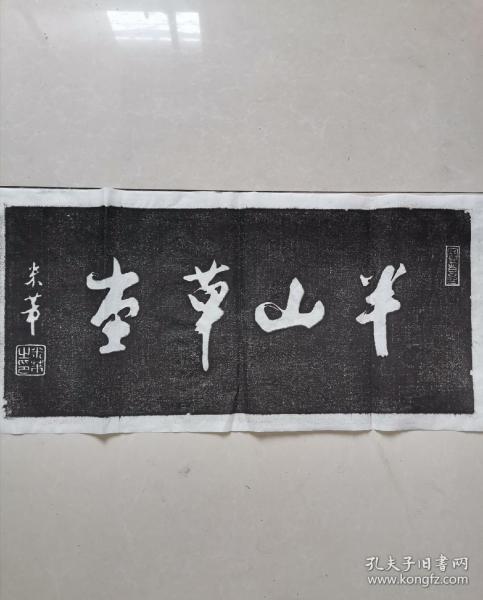 半山草堂
米芾
米芾之印
孔夫子旧书网
www.kongfz.com